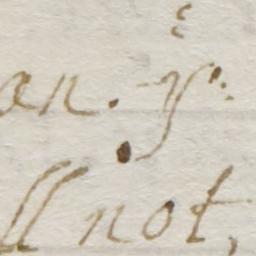 an. yᵉ:
ll not,